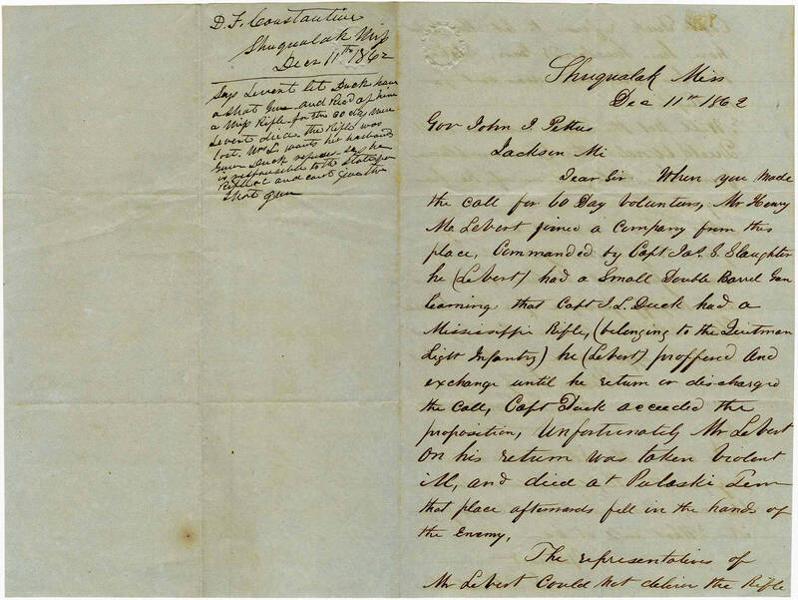 D. F. Constantine
Shuqualak Miss
Decr 11th 1862
Says Levert let Duck have
a Shot Gun and Recd of him
a Miss Rifle for the 60 days. Mr
Levert died the Rifle was
lost. Mrs L. wants her husbands
Gun Duck refuses - says he
is responsible to the State for
Rifle and cant give the
Shot Gun
Shuqualak Miss
Dec 11th 1862
Gov John J. Pettus
Jackson Mi
Dear Sir When you made
the call for 60 Day volunters, Mr Henry
Mc LeVert joined a Company from this
place, Commanded by Capt Jas. S. Slaughter
he (LeVert) had a Small Double Barrel Gun
learning that Capt J. L. Duck had a
Mississippi Rifle, (belonging to the Quitman
Light Infantry) he (LeVert) proffered And
exchange until he return or discharged
the call, Capt Duck acceeded the
proposition, Unfortunately Mr LeVert
On his return was taken violent
ill, and died at Pulaski Tenn
that place afterwards fell in the hands of
the Enemy,
The representatives of
Mr LeVert Could Not deliver the Rifle